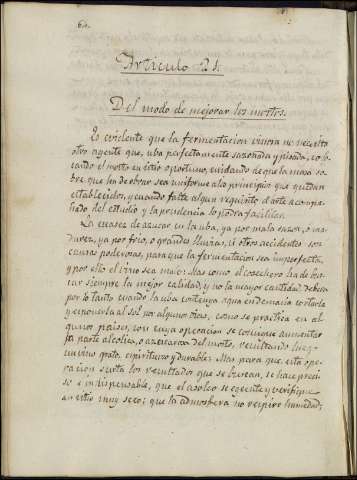 60.
Artículo 21.
Del modo de mejorar los mostos.
Es evidente que la fermentacion vinosa no necesita
otro agente que, uba perfectamente sazonada y pisada, co lo-
cando el mosto en sitio oportuno, cuidando de que la masa so-
bre que ha de obrar sea uniforme a los principios que quedan
establecidos, y cuando falte algun requisito el arte acompa-
ñado del estudio y la prudencia lo podra facilitar.
La escases de azucar en la uba, ya por mala sazon, o ma-
durez, ya por frios, o grandes lluvias, ú otros accidentes son
causas poderosas, para que la fermentacion sea imperfecta,
y por ello el vino sea malo: Mas como el cosechero ha de bus-
car siempre la mejor calidad, y no la mayor cantidad, debera
por lo tanto cuando la uba contenga agua en demasia cortarla
y esponerla al sol por algunos dias, como se practica en al-
gunos paises, con cuya operacion se consigue aumentar
la parte alcolica, o azucarosa del mosto, resultando luego
un vino grato, espirituoso y durable: Mas para que esta ope-
racion surta los resultados que se buscan, se hace preci-
so e indispensable, que el asoleo se egecute y verifique
en sitio muy seco; que la admosfera no respire humedad;